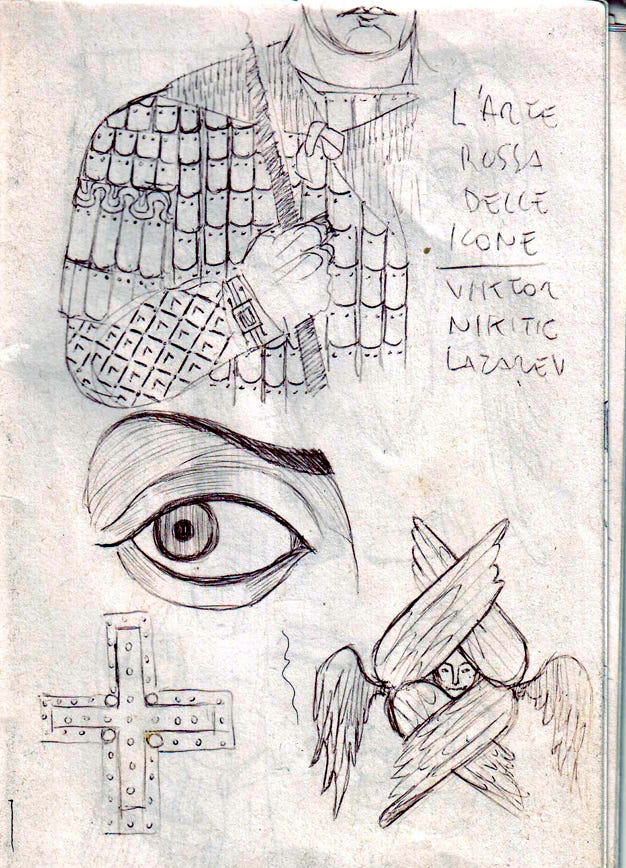 L'ARTE
RUSSA
DELLE
ICONE
VIKTOR
NIKITIC
LAZAREV